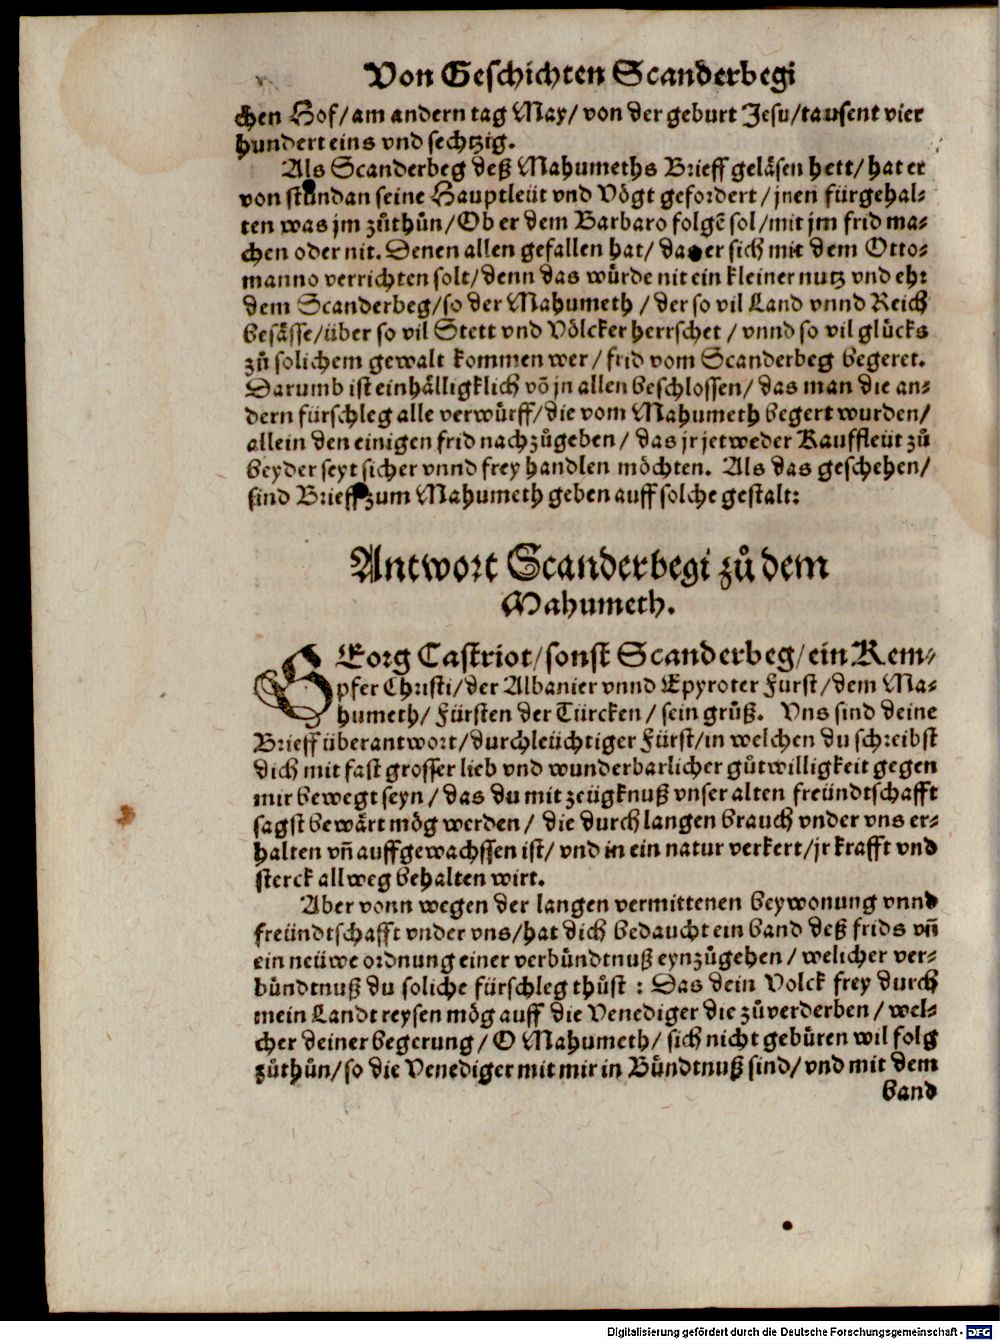 Von Geschichten Scanderbegi
chen Hof/am andern tag May/ von der geburt Jesu/tausent vier
hundert eins vnd sechtzig.
Als Scanderbeg deß Mahumeths Brieff geläsen hett/hat er
von stundan seine Hauptleüt vnd Vögt gefordert/jnen fürgehal-
ten was jm zůthůn/Ob er dem Barbaro folgē sol/mit jm frid ma-
chen oder nit. Denen allen gefallen hat/ das er sich mit dem Otto-
manno verrichten solt/denn das würde nit ein kleiner nutz vnd ehr
dem Scanderbeg/so der Mahumeth /der so vil Land vnnd Reich
besässe/über so vil Stett vnd Völcker herrschet / vnnd so vil glücks
zů solichem gewalt kommen wer/frid vom Scanderbeg begeret.
Darumb ist einhälligklich võ jn allen beschlossen/das man die an-
dern fürschleg alle verwürff/die vom Mahumeth begert wurden/
allein den einigen frid nachzůgeben/das jr jetweder Kauffleüt zů
beyder seyt sicher vnnd frey handlen möchten. Als das geschehen/
sind Brieff zum Mahumeth geben auff solche gestalt:
Antwort Scanderbegi zů dem
Mahumeth.
GEorg Castriot/sonst Scanderbeg/ein Kem-
pfer Christi/der Albanier vnnd Epyroter Fürst/dem Ma-
humeth/ Fürsten der Türcken/ sein grůß. Vns sind deine
Brieff überantwort/durchleüchtiger Fürst/in welchen du schreibst
dich mit fast grosser lieb vnd wunderbarlicher gůtwilligkeit gegen
mir bewegt seyn/das du mit zeügknuß vnser alten freündtschafft
sagst bewärt mög werden/ die durch langen brauch vnder vns er-
halten vñ auffgewachssen ist/ vnd in ein natur verkert/jr krafft vnd
sterck allweg behalten wirt.
Aber vonn wegen der langen vermittenen beywonung vnnd
freündtschafft vnder vns/hat dich bedaucht ein band deß frids vñ
ein neüwe ordnung einer verbündtnuß eynzůgehen/welicher ver-
bündtnuß du soliche fürschleg thůst : Das dein Volck frey durch
mein Landt reysen mög auff die Venediger die zůverderben/wel-
cher deiner begerung/O Mahumeth/ sich nicht gebüren wil folg
zůthůn/so die Venediger mit mir in Bündtnuß sind/vnd mit dem
band
Digitalisierung gefördert durch die Deutsche Forschungsgemeinschaft - DFG